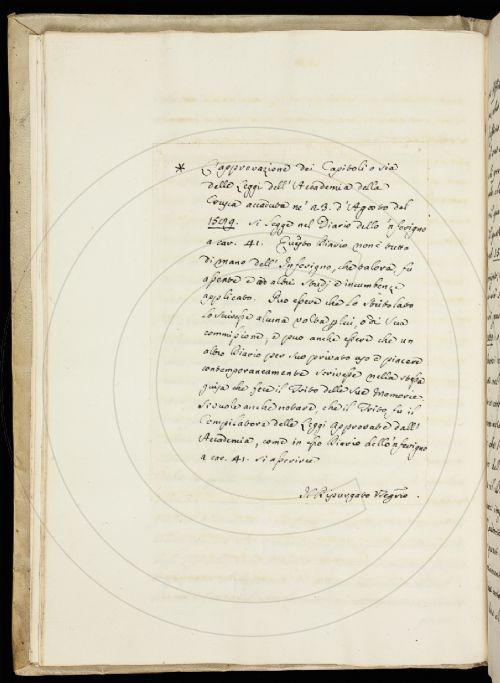 * L'approvazione dei Capitoli o sia
delle Leggi dell'Accademia della
Crusca accaduta ne' 23. d'Agosto del
1589. si legge nel Diario dello 'nferigno
a car. 41. Questo Diario non è tutto
di mano dell'Inferigno, che talora fu
assente e ad altri Studj d'incumbenze
applicato. Può essere che lo Stritolato
lo scrivesse alcuna volta per lui, o di sua
commissione, e può anche essere che un
altro Diario per suo privato uso e piacere
contemporaneamente scrivesse nella stessa
guisa che fece il Trito delle sue Memorie.
Si vuole anche notare, che il Trito fu il
Compilatore delle Leggi approvate dall'
Accademia, come in esso Diario dello 'nferigno
a car. 41. si asserisce
Il Ripurgato Segrio.